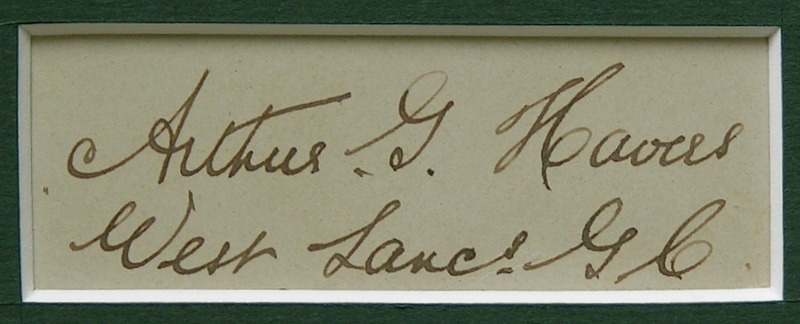 Arthur G. Havers
West Lancs. G C